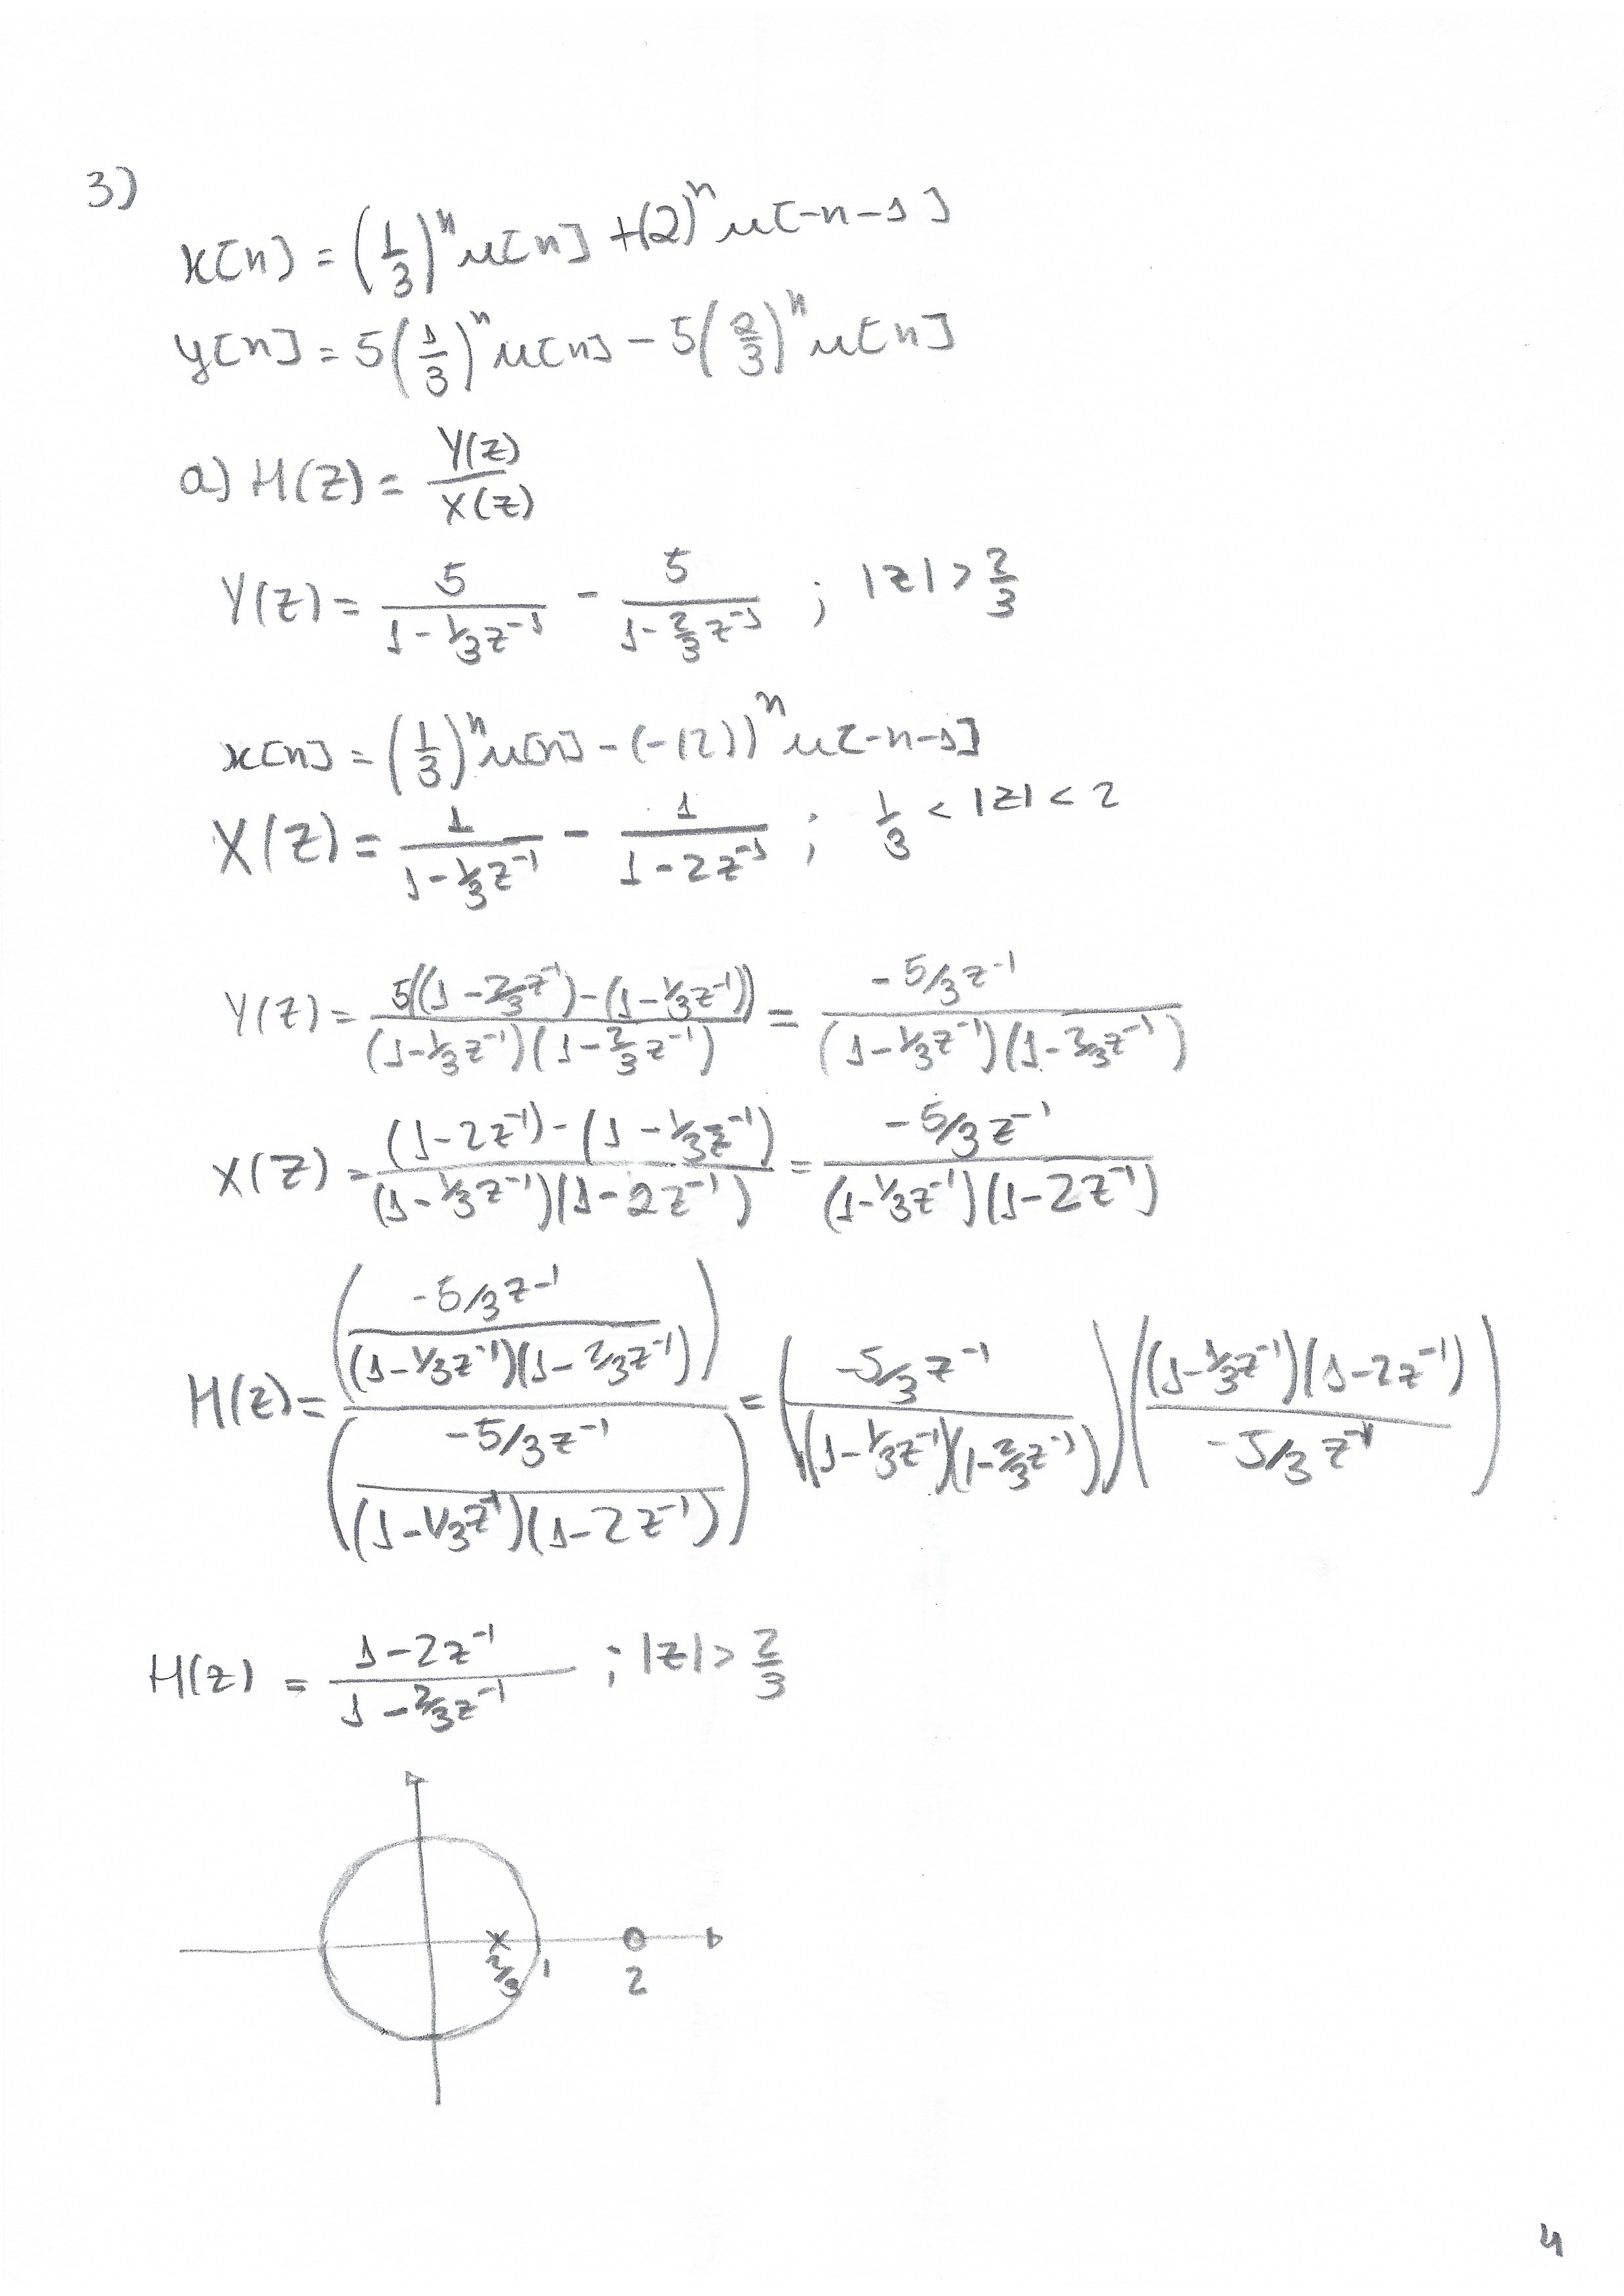 3)
x[n] = (1/3)^n u[n] + (2)^n u[-n-1]
y[n] = 5(1/3)^n u[n] - 5(2/3)^n u[n]
a) H(z) = Y(z)/X(z)
Y(z) = 5/(1 - 1/3 z^-1) - 5/(1 - 2/3 z^-1) ; |z| > 2/3
x[n] = (1/3)^n u[n] - (-(2))^n u[-n-1]
X(z) = 1/(1 - 1/3 z^-1) - 1/(1 - 2z^-1) ; 1/3 < |z| < 2
Y(z) = 5((1 - 2/3 z^-1) - (1 - 1/3 z^-1))/((1 - 1/3 z^-1)(1 - 2/3 z^-1)) = (-5/3 z^-1)/((1 - 1/3 z^-1)(1 - 2/3 z^-1))
X(z) = ((1 - 2z^-1) - (1 - 1/3 z^-1))/((1 - 1/3 z^-1)(1 - 2z^-1)) = (-5/3 z^-1)/((1 - 1/3 z^-1)(1 - 2z^-1))
H(z) = ((-5/3 z^-1)/((1 - 1/3 z^-1)(1 - 2/3 z^-1)))/((-5/3 z^-1)/((1 - 1/3 z^-1)(1 - 2z^-1))) = ((-5/3 z^-1)/((1 - 1/3 z^-1)(1 - 2/3 z^-1)))(((1 - 1/3 z^-1)(1 - 2z^-1))/(-5/3 z^-1))
H(z) = (1 - 2z^-1)/(1 - 2/3 z^-1) ; |z| > 2/3
2/3 1 2
4